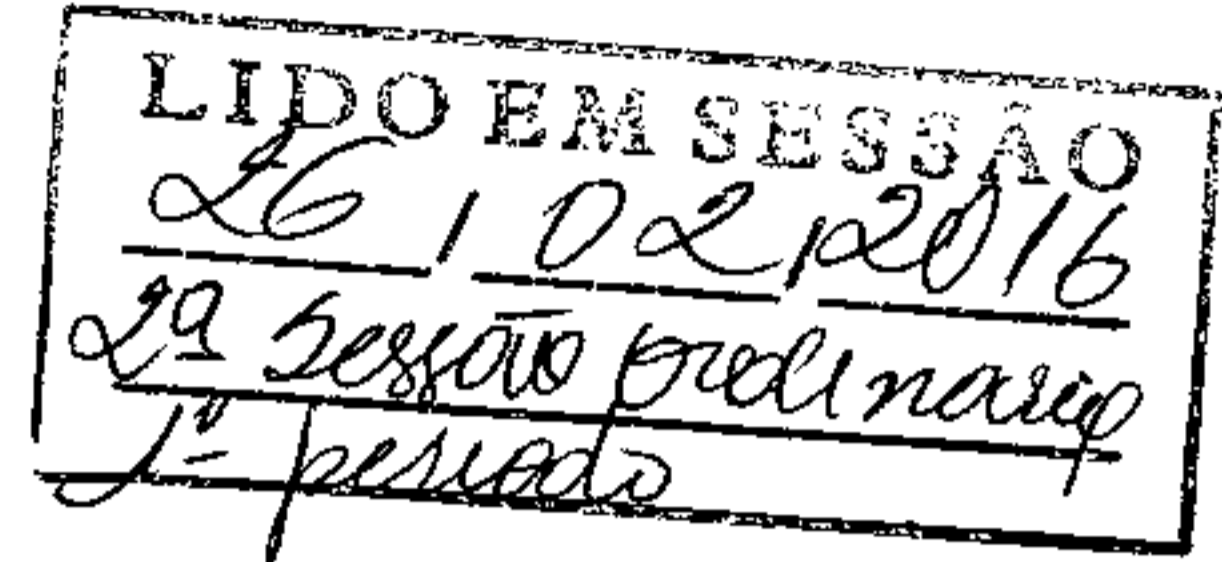 LIDO EM SESSÃO
26 / 02 / 2016
2ª Sessão Ordinaria
1º periodo